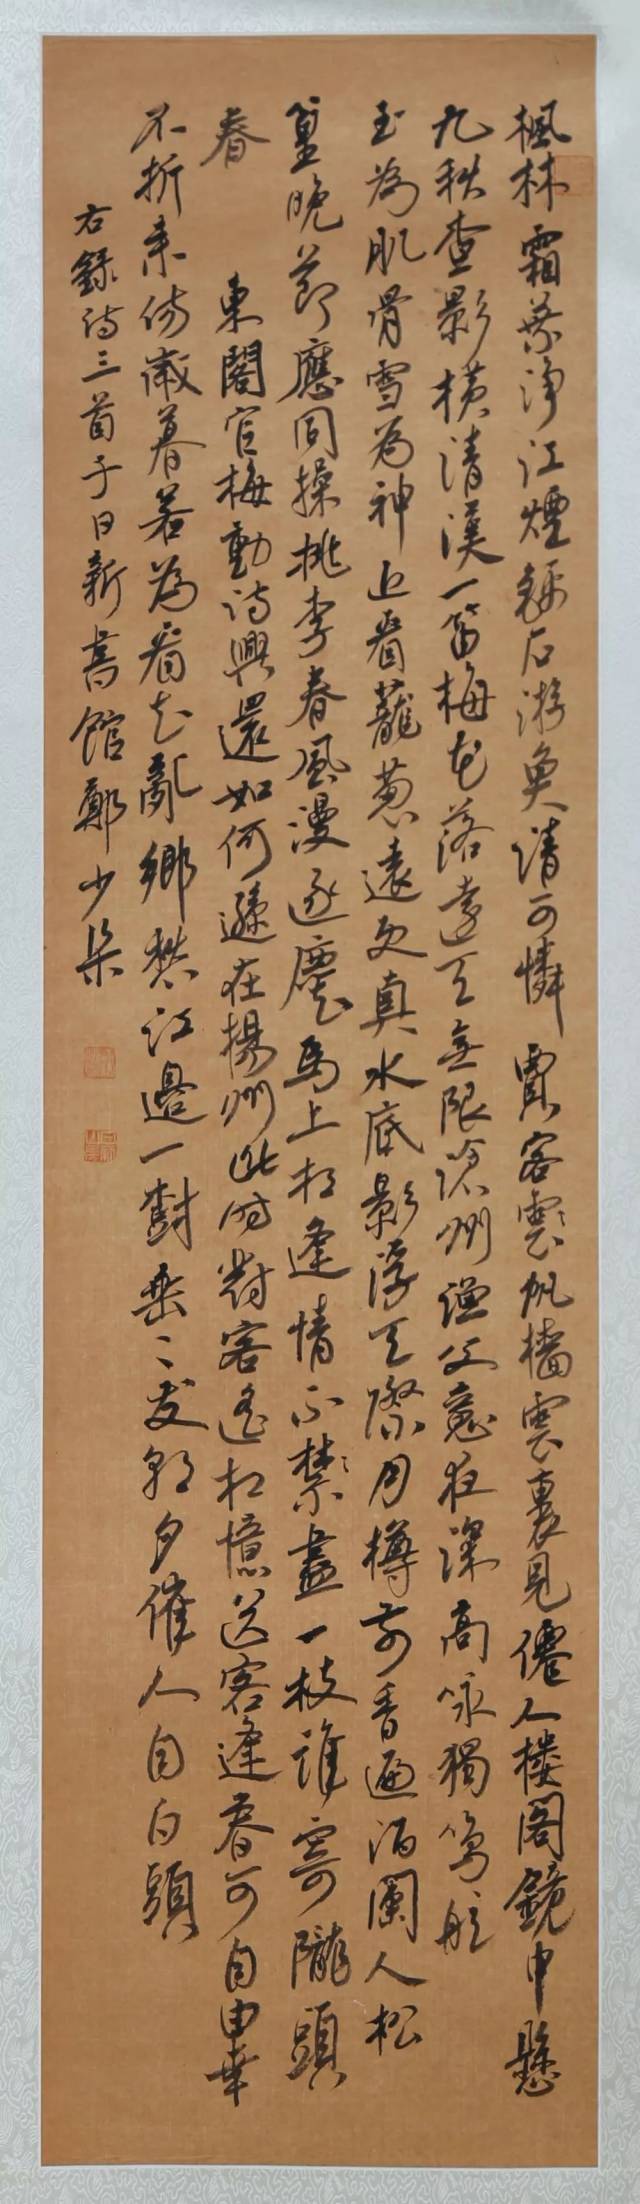 楓林霜葉淨江煙錦石游魚清可憐賈客雲帆檣雲裏見僊人樓閣鏡中懸
九秋查影橫清漢一笛梅花落遠天無限滄州漁父意夜深高咏獨鳴舷
玉為肌骨雪為神近看蘢蔥遠更真水底影浮天際月樽前香遍酒闌人松
篁晚節應同操桃李春風漫逐塵馬上相逢情不禁盡一枝誰寄隴頭
春
東閣官梅動詩興還如何遜在揚州此時對客遙相憶送客逢春可自由幸
不折來傷歲暮若為看花亂鄉愁江邊一樹垂〻發朝夕催人自白頭
右錄詩三首子日新書館鄭少